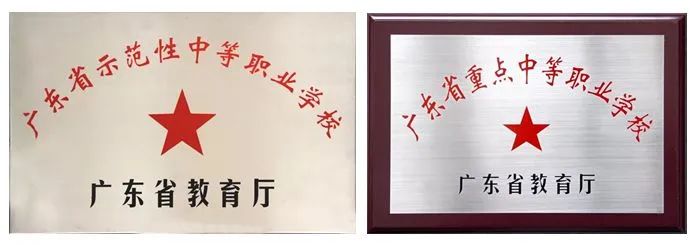 广东省示范性中等职业学校
广东省教育厅
广东省重点中等职业学校
广东省教育厅